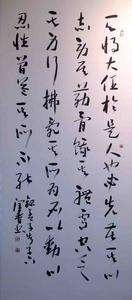 天將大任於是人也必先苦其心
志勞其筋骨餓其體膚空乏
其身行拂亂其所為所以動心
忍性曾益其所不能